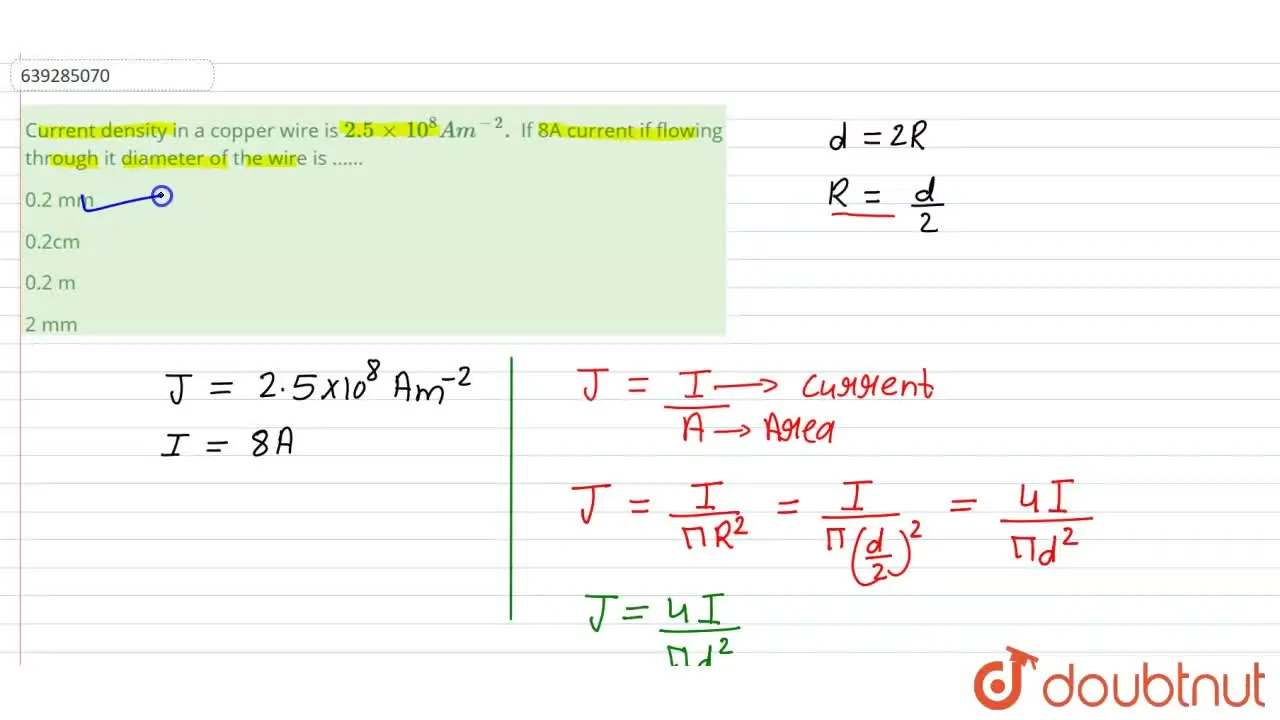 639285070
Current density in a copper wire is 2.5 × 10⁸Am⁻². If 8A current if flowing
through it diameter of the wire is ......
0.2 mm
0.2cm
0.2 m
2 mm
d = 2R
R = d/2
J = 2.5×10⁸ Am⁻²
I = 8A
J = I/A
I → current
A → Area
J = I/ΠR² = I/Π(d/2)² = 4I/Πd²
J = 4I/Πd²
doubtnut